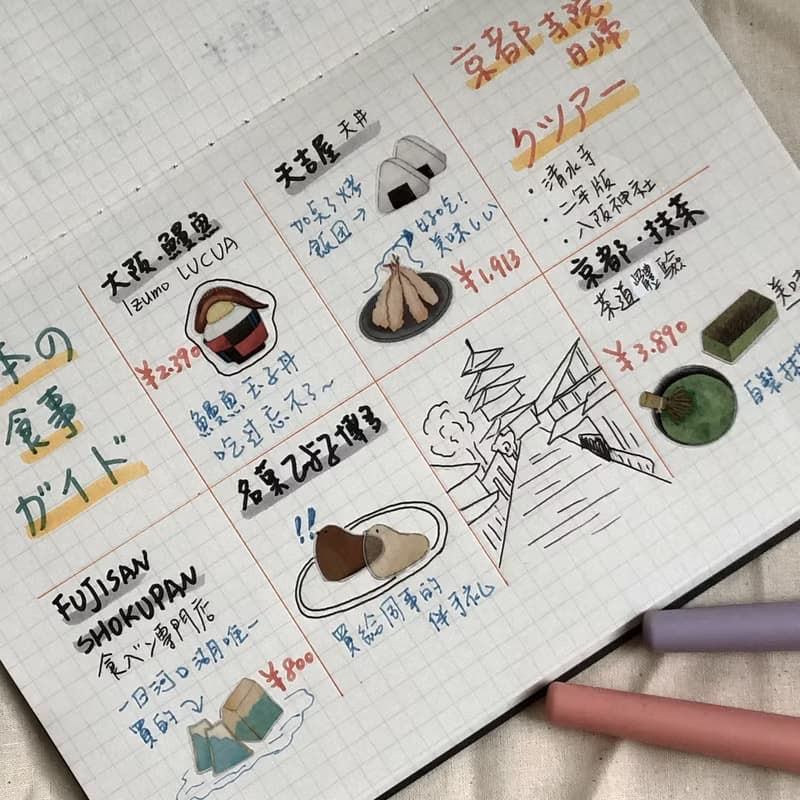 本の
食事
ガイド
大阪・鰻魚
Izumo LUCUA
¥2.390
鰻魚玉子丼
吃过忘不了~
天吉屋 天丼
加点了烤
飯団→
好吃!
美味しい
¥1.913
京都寺院
日帰
りツアー
・清水寺
・二年版
・八阪神社
京都・抹茶
茶道體驗
¥3.890
美味
自製抹
FUJISAN
SHOKUPAN
食べン専門店
一日河口湖唯一
買的
¥800
名菓ひよ子博多
!!
買給同事的
伴手礼